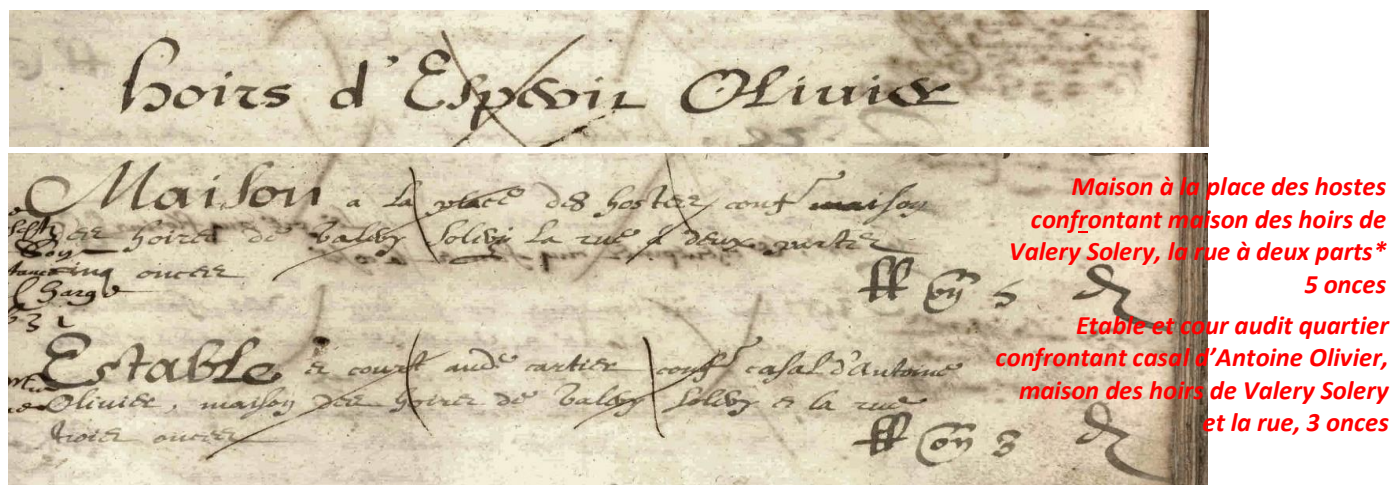 hoirs d'Esperit Olivier
Maison a la place des hostes, conf.t maison
des hoires de Valery Solery la rue a deux partz
cinq onces
ff on 5 d
Estable et court aud.t cartier conf.t casal d'Antoine
Olivier, maison des hoires de Valery Solery et la rue
trois onces
ff on 3 d
Maison à la place des hostes
confrontant maison des hoirs de
Valery Solery, la rue à deux parts*
5 onces
Etable et cour audit quartier
confrontant casal d'Antoine Olivier,
maison des hoirs de Valery Solery
et la rue, 3 onces